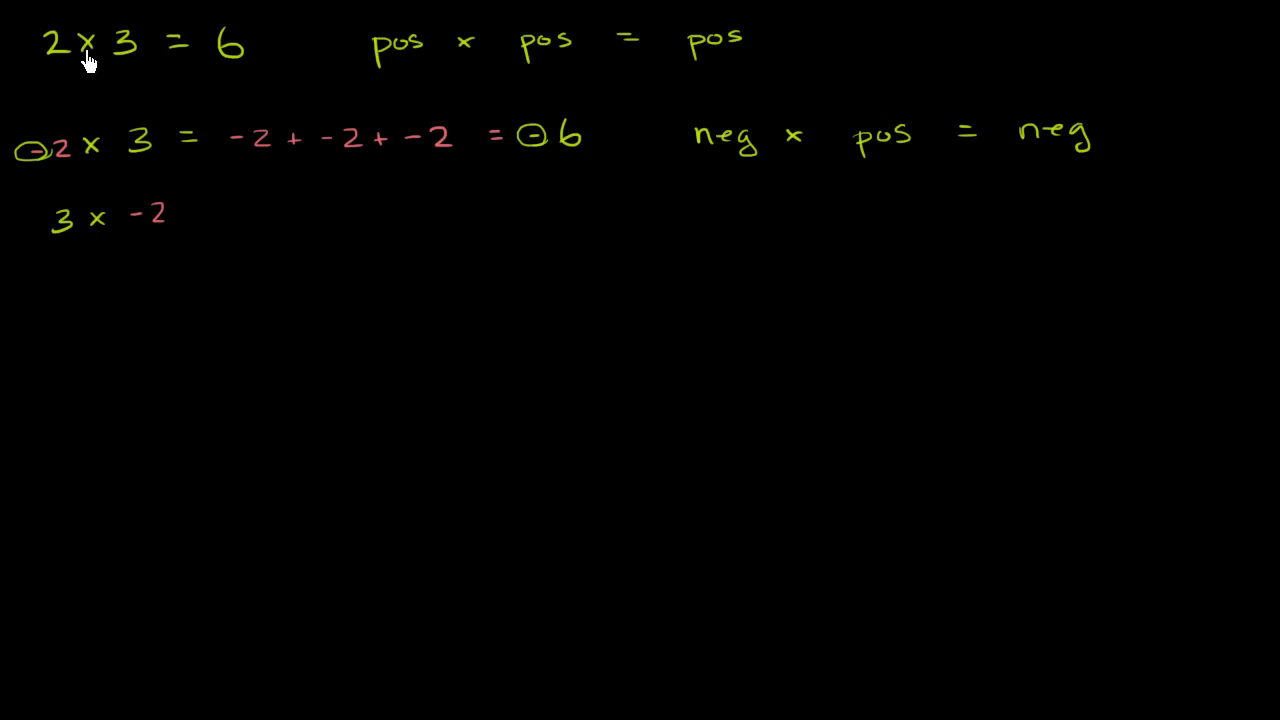 2 × 3 = 6 pos × pos = pos
-2 × 3 = -2 + -2 + -2 = -6 neg × pos = neg
3 × -2